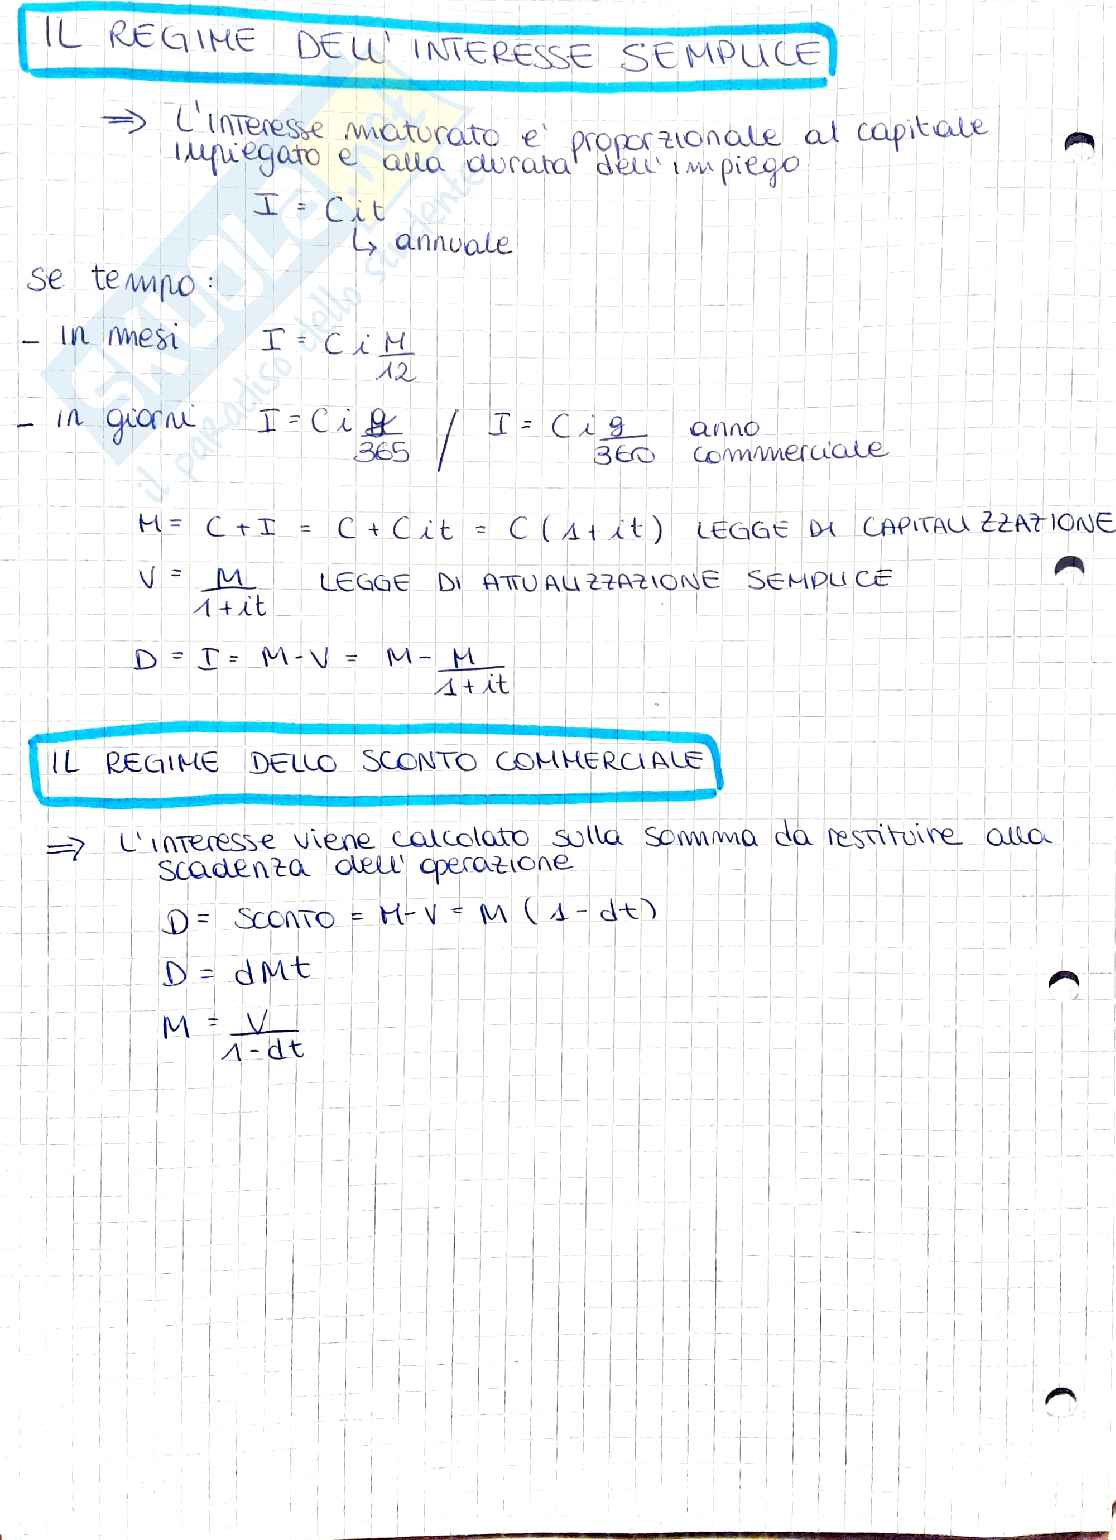 IL REGIME DELL'INTERESSE SEMPLICE
=> L'interesse maturato e' proporzionale al capitale
impiegato e alla durata dell'impiego
I = Cit
↳ annuale
se tempo:
- in mesi I = C i M/12
- in giorni I = C i g/365 / I = C i g/360 anno
commerciale
M = C + I = C + Cit = C (1 + it) LEGGE DI CAPITALIZZAZIONE
V = M/1+it LEGGE DI ATTUALIZZAZIONE SEMPLICE
D = I = M - V = M - M/1+it
IL REGIME DELLO SCONTO COMMERCIALE
=> L'interesse viene calcolato sulla somma da restituire alla
scadenza dell'operazione
D = SCONTO = M - V = M (1 - dt)
D = dMt
M = V/1-dt
SKUOLA.net
il paradiso dello studente